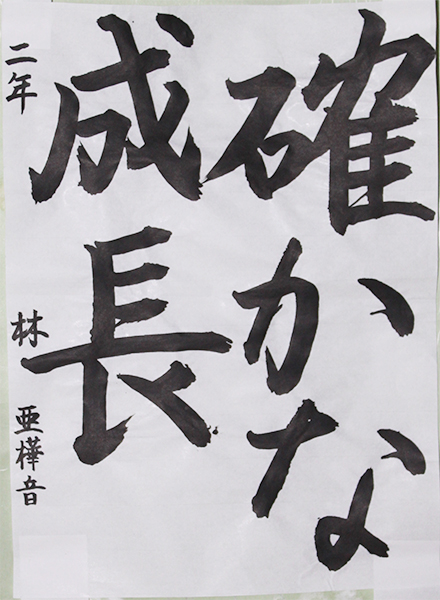 確かな
成長
二年 林 亜樺音